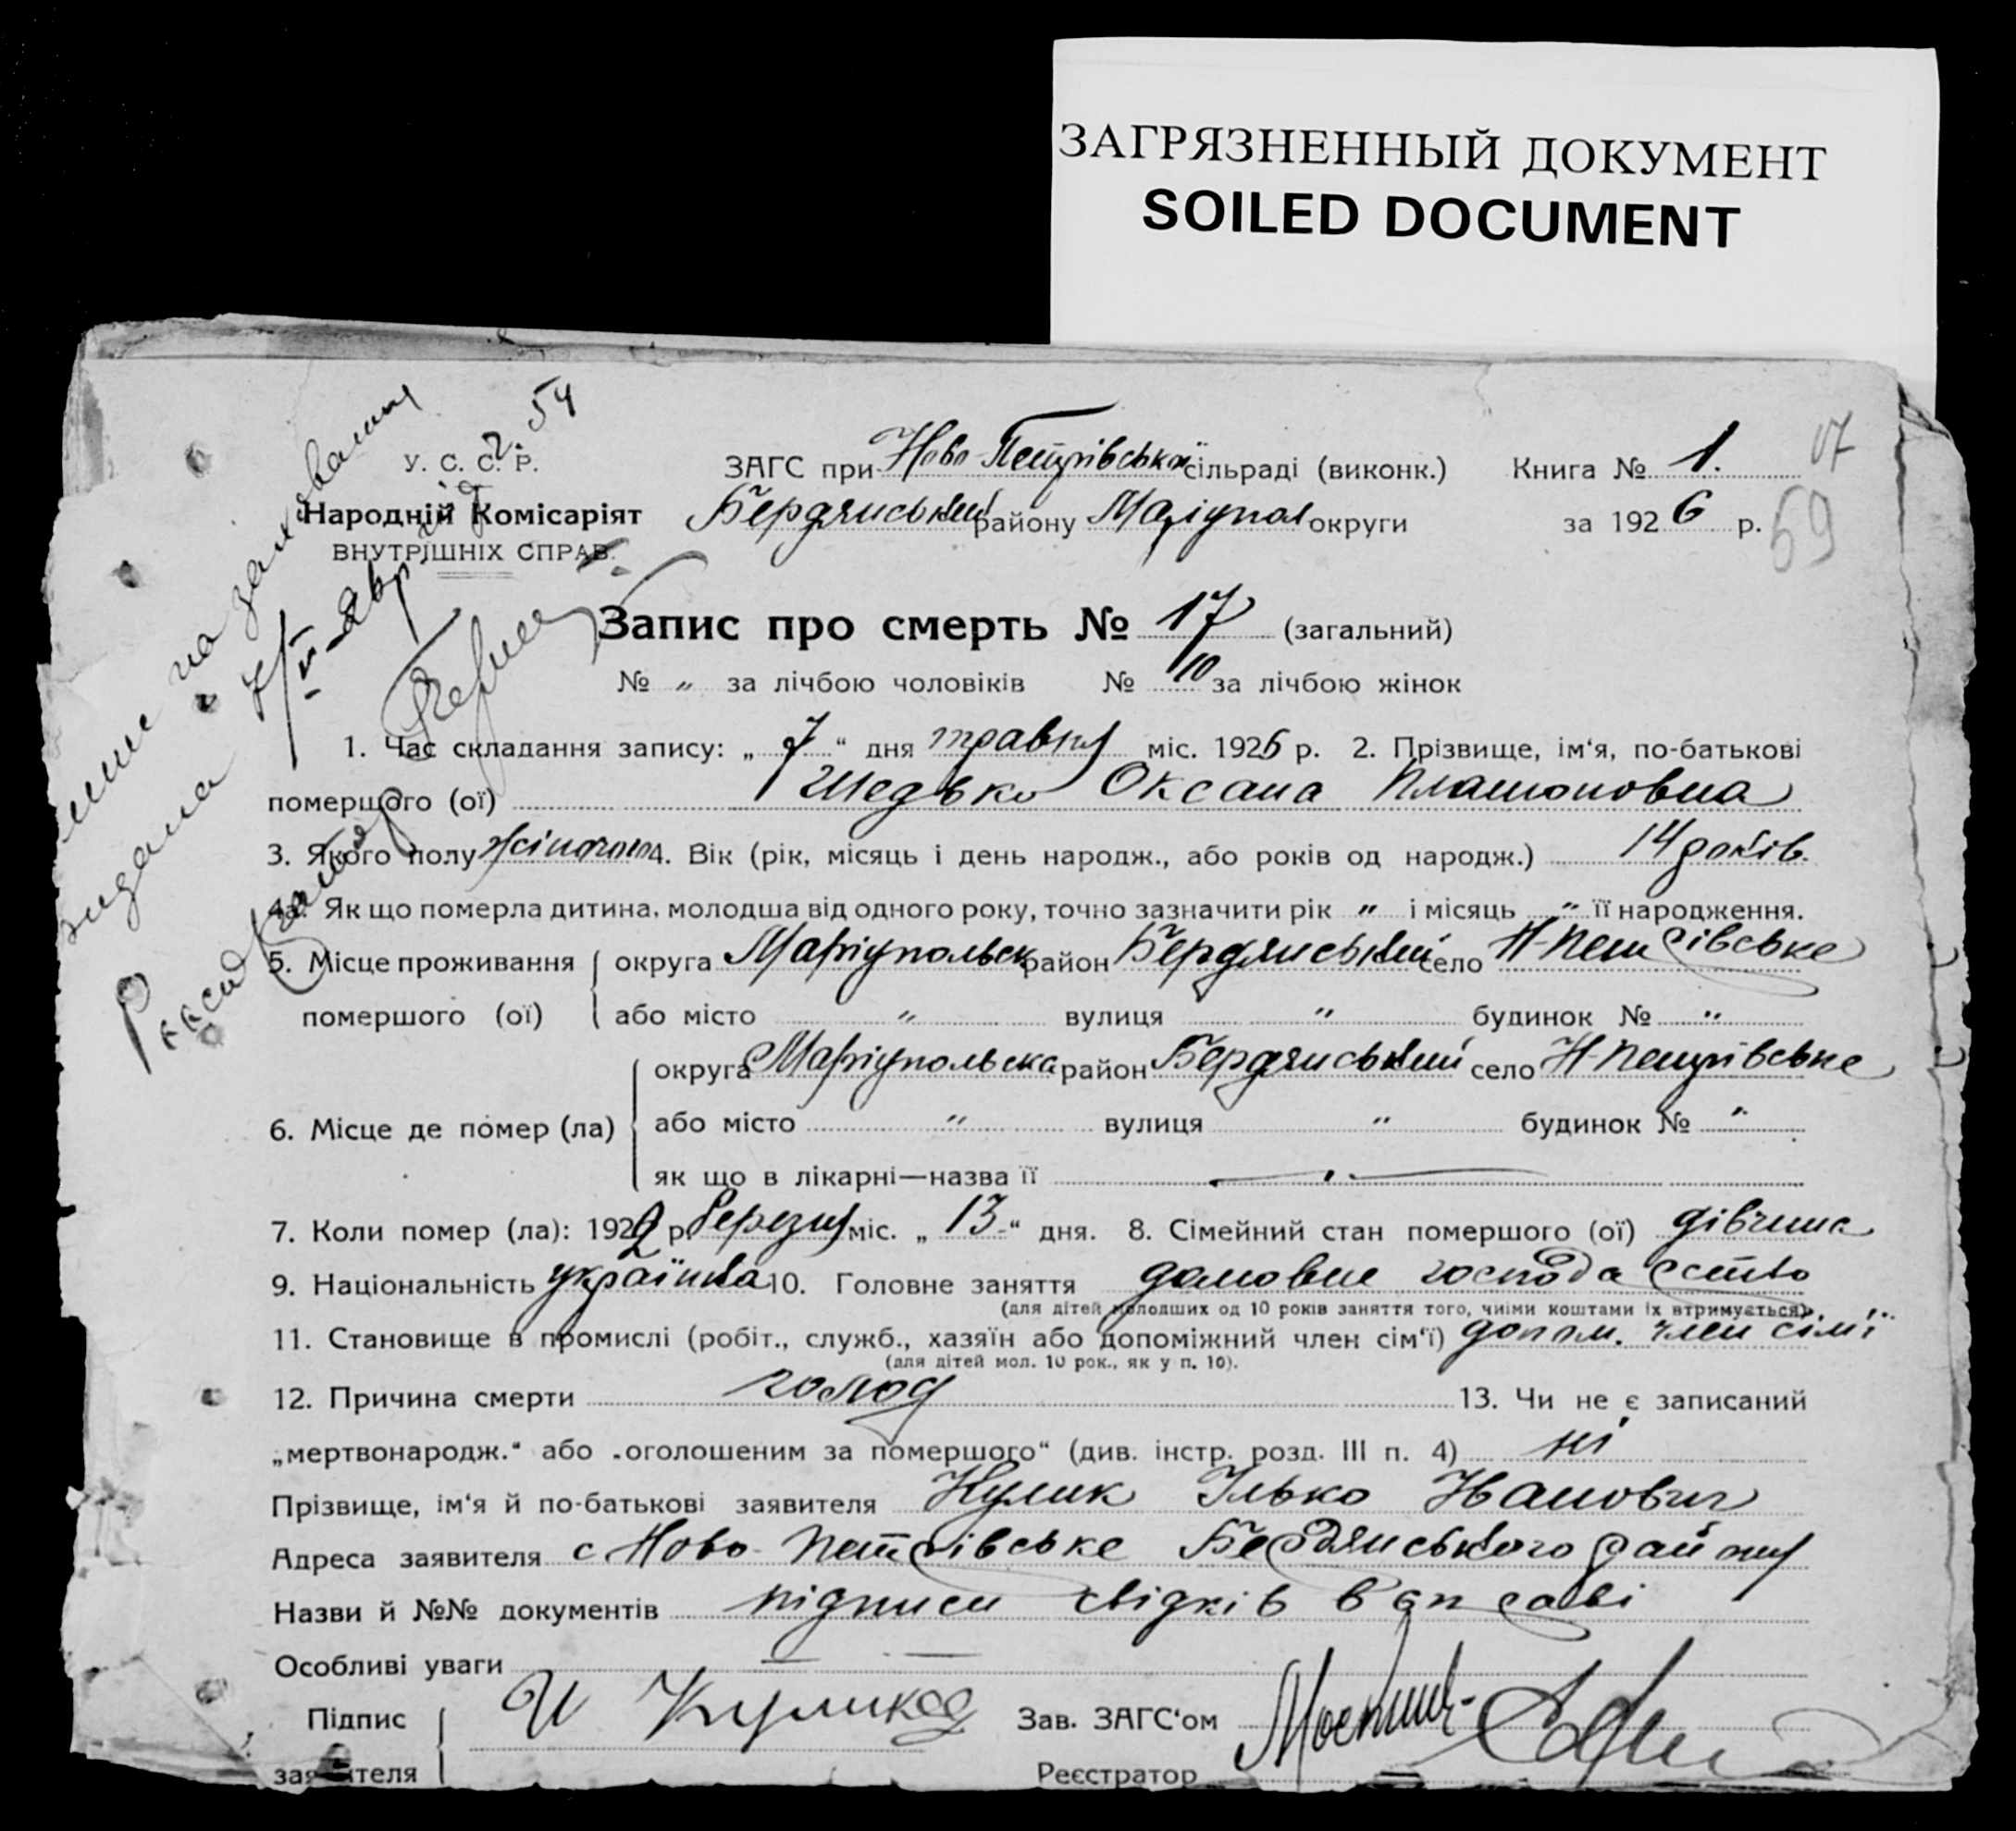 ЗАГРЯЗНЕННЫЙ ДОКУМЕНТ
SOILED DOCUMENT
У. С. С. Р.
Народній Комісаріят
ВНУТРІШНІХ СПРАВ.
54
ЗАГС при Ново-Петрівській сільраді (виконк.) Книга № 1.
Бердянський району Маріупол округи за 1926 р.
69
Запис про смерть № 17 (загальний)
№ „ за лічбою чоловіків № 10 за лічбою жінок
1. Час складання запису: „ 7 “ дня травня міс. 1926 р. 2. Прізвище, ім‘я, по-батькові
помершого (ої) Шедько Оксана Платоновна
3. Якого полу жіночого 4. Вік (рік, місяць і день народж., або років од народж.) 14 років.
4а. Як що померла дитина, молодша від одного року, точно зазначити рік „ і місяць „ її народження.
5. Місце проживання округа Маріупольськ район Бердянський село Н-Петрівське
помершого (ої) або місто „ вулиця „ будинок № „
округа Маріупольська район Бердянський село Н-Петрівське
6. Місце де помер (ла) або місто „ вулиця „ будинок № „
як що в лікарні—назва її
7. Коли помер (ла): 1922 р. березня міс. „ 13 “ дня. 8. Сімейний стан помершого (ої) дівчина
9. Національність українка 10. Головне заняття домовне господарство
(для дітей молодших од 10 років заняття того, чиїми коштами їх втримується).
11. Становище в промислі (робіт., служб., хазяїн або допоміжний член сім‘ї) допом. член сім'ї
(для дітей мол. 10 рок., як у п. 10).
12. Причина смерти голод 13. Чи не є записаний
„мертвонародж.“ або „оголошеним за помершого“ (див. інстр. розд. III п. 4) ні
Прізвище, ім‘я й по-батькові заявителя Кулик Ілько Іванович
Адреса заявителя с Ново-Петрівське Бердянського району
Назви й №№ документів підписи свідків в справі
Особливі уваги
Підпис И Куликов Зав. ЗАГС‘ом
заявителя Реєстратор